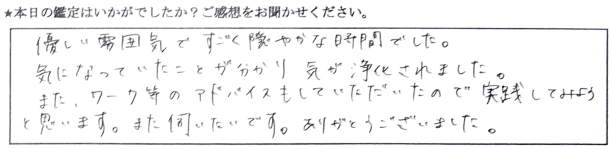 ★本日の鑑定はいかがでしたか？ご感想をお聞かせください。
優しい雰囲気ですごく穏やかな時間でした。
気になっていたことが分かり気が浄化されました。
また、ワーク等のアドバイスもしていただいたので実践してみよう
と思います。また伺いたいです。ありがとうございました。